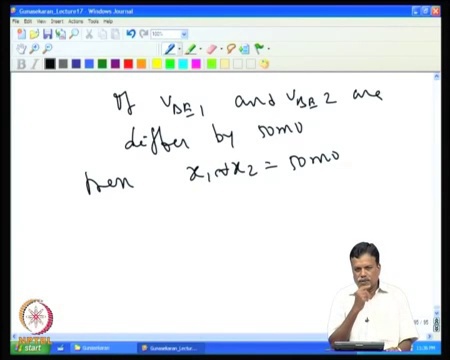 Gunasekaran_Lecture17 - Windows Journal
File Edit View Insert Actions Tools Help
100%
B I
If VBE1 and VBE2 are
differ by 50mV
then x1 x2 = 50mV
NPTEL
start
Gunasekaran
Gunasekaran_Lectu...